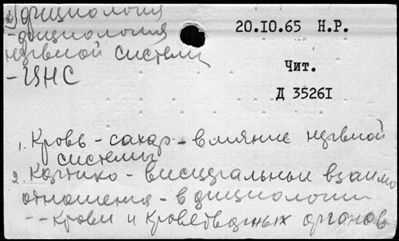 физиология
- физиология
нервной системы
- ЦНС
20.IO.65 Н.Р.
Чит.
Д 3526I
1. Кровь - сахар - влияние нервной
системы
2. Кортико - висцеральные взаимо
отношения - в физиологии
-- крови и кроветворных органов